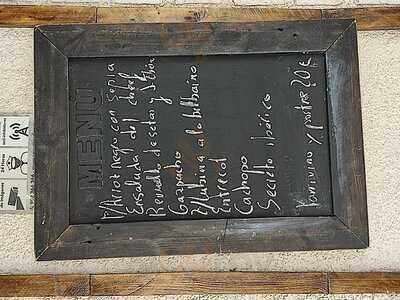 MENÚ
Arroz negro con Sepia
Ensalada del chef
Revuelto de setas y jamón
Gazpacho
Albóndiga a la bilbaína
Entrecot
Cachopo
Secreto ibérico
Pan vino y postre 20€